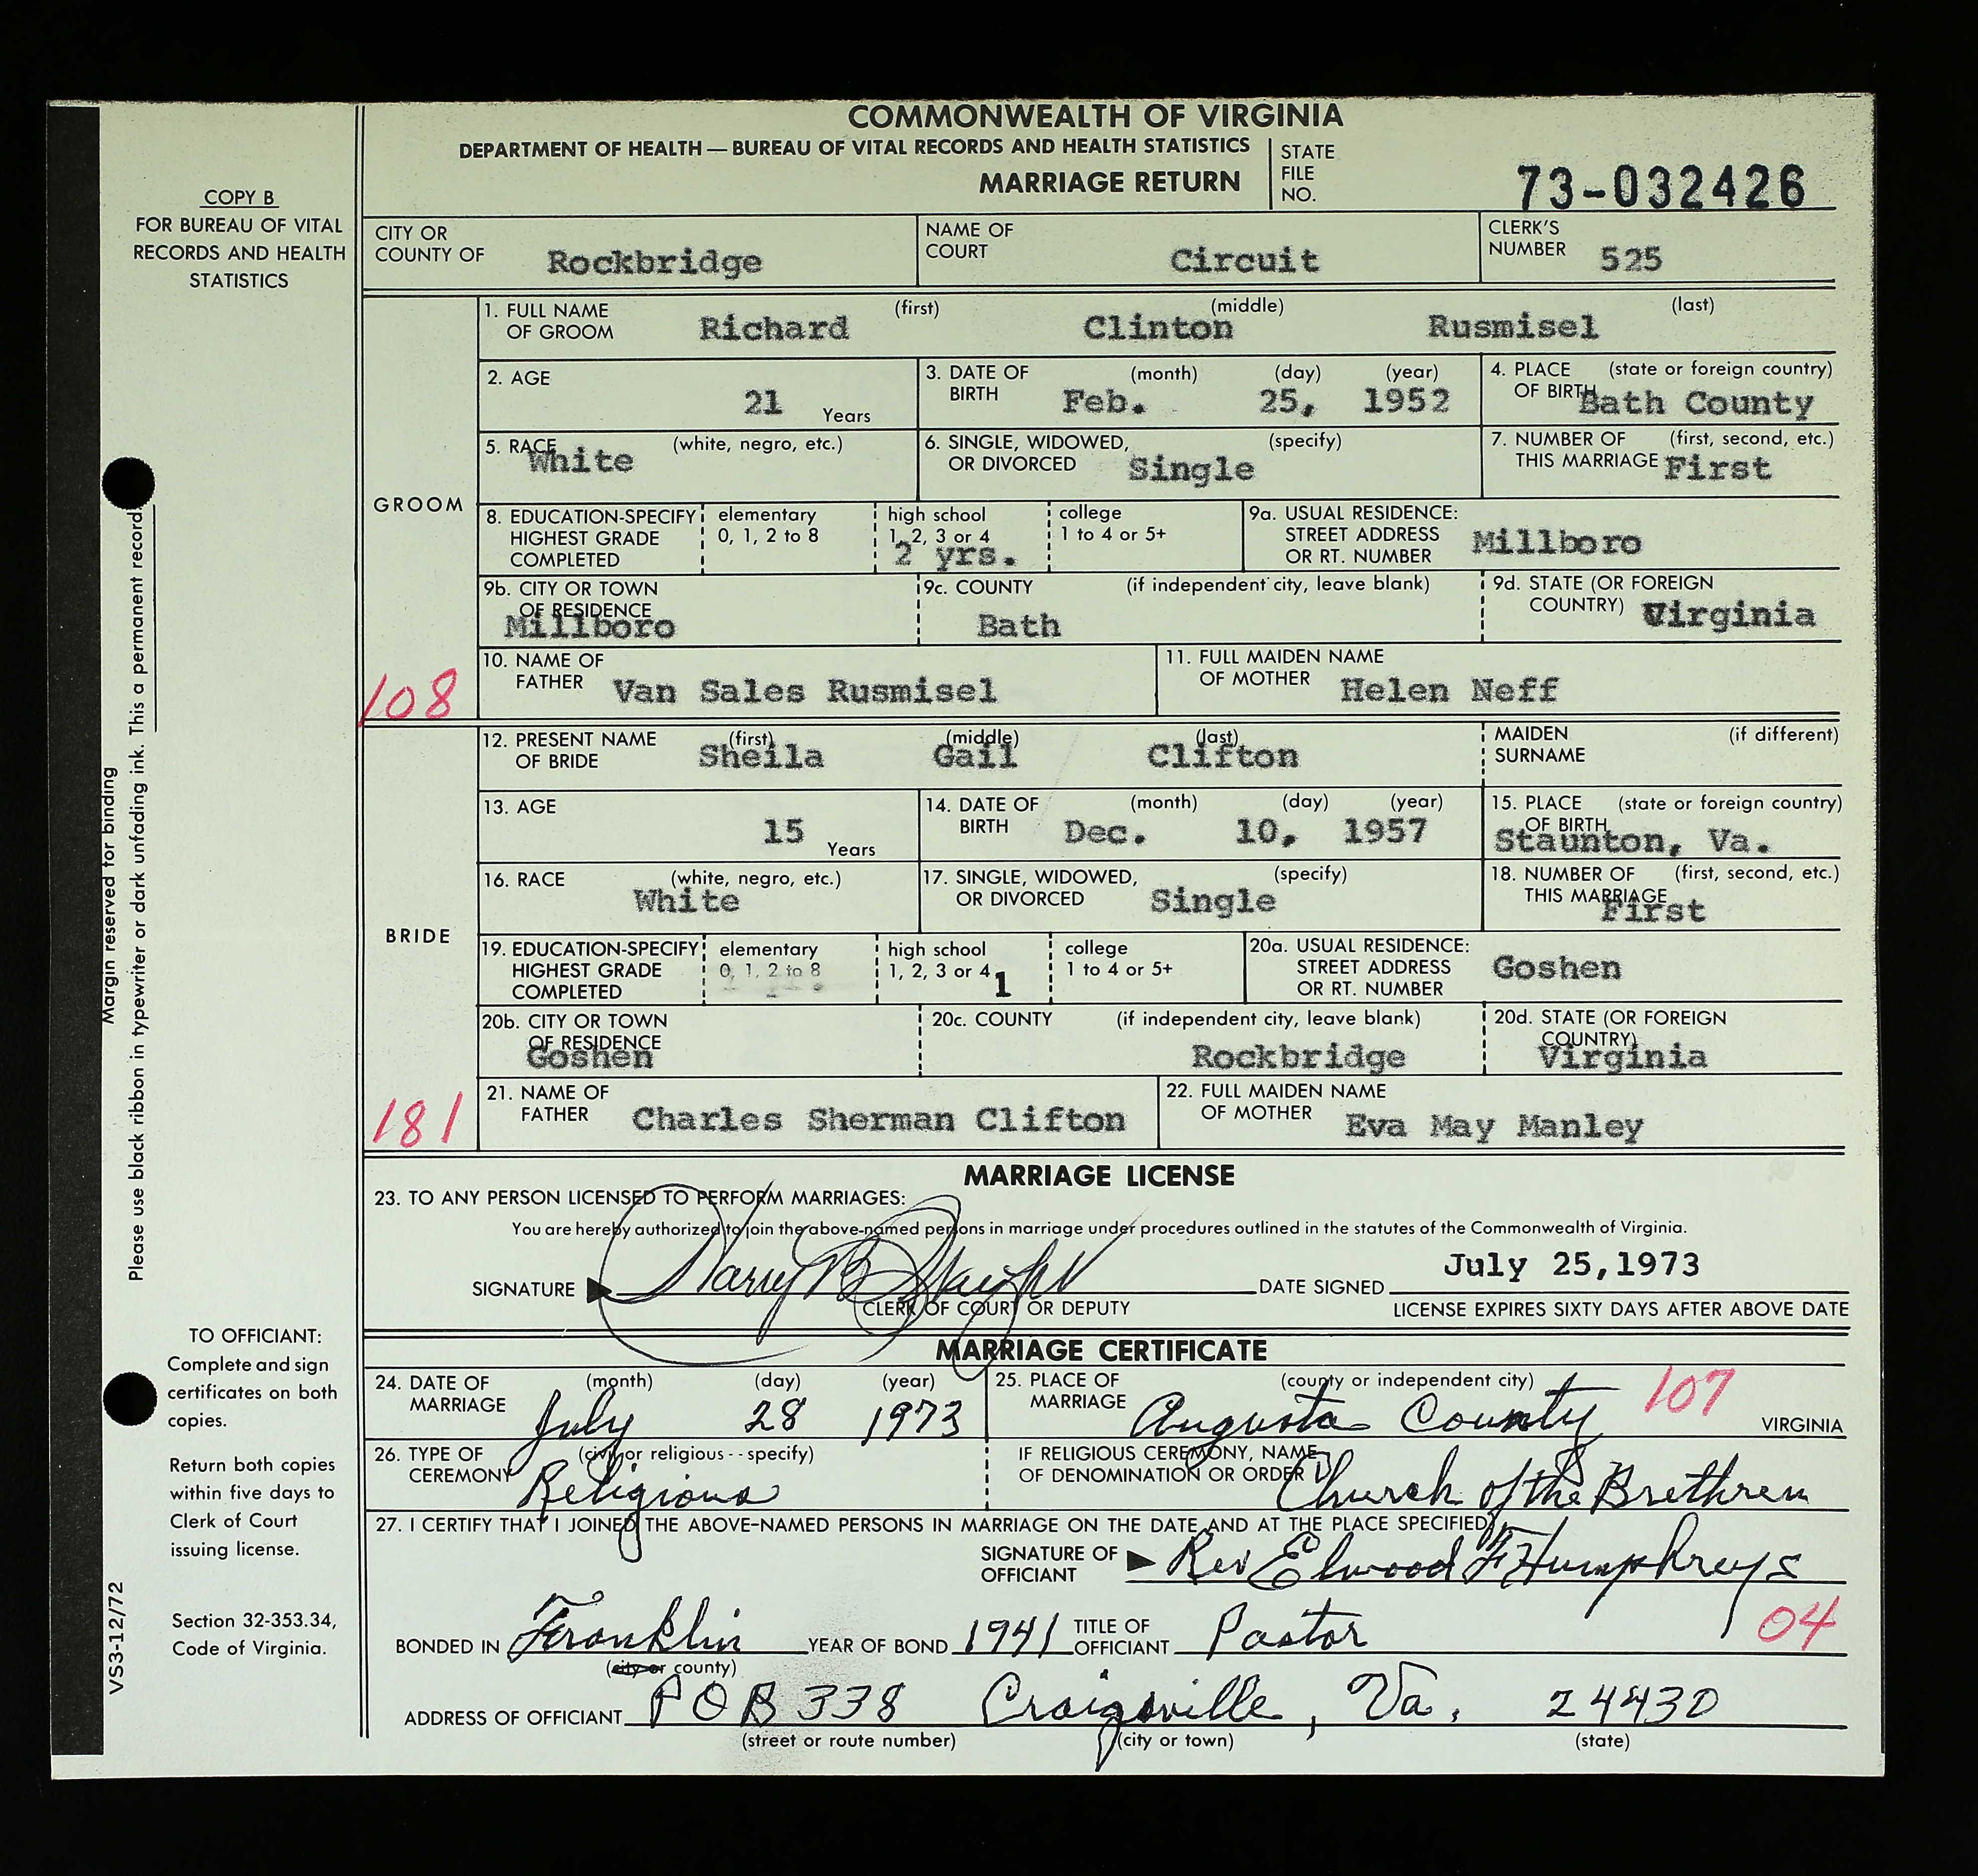 COMMONWEALTH OF VIRGINIA
DEPARTMENT OF HEALTH — BUREAU OF VITAL RECORDS AND HEALTH STATISTICS
MARRIAGE RETURN
STATE FILE NO. 73-032426
COPY B
FOR BUREAU OF VITAL
RECORDS AND HEALTH
STATISTICS
CITY OR COUNTY OF Rockbridge NAME OF COURT Circuit CLERK'S NUMBER 525
GROOM
1. FULL NAME OF GROOM (first) Richard (middle) Clinton (last) Rusmisel
2. AGE 21 Years 3. DATE OF BIRTH (month) Feb. (day) 25, (year) 1952 4. PLACE OF BIRTH (state or foreign country) Bath County
5. RACE (white, negro, etc.) White 6. SINGLE, WIDOWED, OR DIVORCED (specify) Single 7. NUMBER OF THIS MARRIAGE (first, second, etc.) First
8. EDUCATION-SPECIFY HIGHEST GRADE COMPLETED elementary 0, 1, 2 to 8 high school 1, 2, 3 or 4 2 yrs. college 1 to 4 or 5+ 9a. USUAL RESIDENCE: STREET ADDRESS OR RT. NUMBER Millboro
9b. CITY OR TOWN OF RESIDENCE Millboro 9c. COUNTY (if independent city, leave blank) Bath 9d. STATE (OR FOREIGN COUNTRY) Virginia
10. NAME OF FATHER Van Sales Rusmisel 11. FULL MAIDEN NAME OF MOTHER Helen Neff
108
BRIDE
12. PRESENT NAME OF BRIDE (first) Sheila (middle) Gail (last) Clifton MAIDEN SURNAME (if different)
13. AGE 15 Years 14. DATE OF BIRTH (month) Dec. (day) 10, (year) 1957 15. PLACE OF BIRTH (state or foreign country) Staunton, Va.
16. RACE (white, negro, etc.) White 17. SINGLE, WIDOWED, OR DIVORCED (specify) Single 18. NUMBER OF THIS MARRIAGE (first, second, etc.) First
19. EDUCATION-SPECIFY HIGHEST GRADE COMPLETED elementary 0, 1, 2 to 8 high school 1, 2, 3 or 4 1 college 1 to 4 or 5+ 20a. USUAL RESIDENCE: STREET ADDRESS OR RT. NUMBER Goshen
20b. CITY OR TOWN OF RESIDENCE Goshen 20c. COUNTY (if independent city, leave blank) Rockbridge 20d. STATE (OR FOREIGN COUNTRY) Virginia
21. NAME OF FATHER Charles Sherman Clifton 22. FULL MAIDEN NAME OF MOTHER Eva May Manley
181
MARRIAGE LICENSE
23. TO ANY PERSON LICENSED TO PERFORM MARRIAGES:
You are hereby authorized to join the above-named persons in marriage under procedures outlined in the statutes of the Commonwealth of Virginia.
SIGNATURE Harry B DATE SIGNED July 25,1973
CLERK OF COURT OR DEPUTY LICENSE EXPIRES SIXTY DAYS AFTER ABOVE DATE
MARRIAGE CERTIFICATE
24. DATE OF MARRIAGE (month) July (day) 28 (year) 1973 25. PLACE OF MARRIAGE (county or independent city) Augusta County 107 VIRGINIA
26. TYPE OF CEREMONY (civil or religious -- specify) Religious IF RELIGIOUS CEREMONY, NAME OF DENOMINATION OR ORDER Church of the Brethren
27. I CERTIFY THAT I JOINED THE ABOVE-NAMED PERSONS IN MARRIAGE ON THE DATE AND AT THE PLACE SPECIFIED
SIGNATURE OF OFFICIANT Rev Elwood F. Humphreys
BONDED IN Franklin (city or county) YEAR OF BOND 1941 TITLE OF OFFICIANT Pastor 04
ADDRESS OF OFFICIANT P O B 338 Craigsville, Va. 24430
(street or route number) (city or town) (state)
Margin reserved for binding
Please use black ribbon in typewriter or dark unfading ink. This a permanent record.
TO OFFICIANT:
Complete and sign
certificates on both
copies.
Return both copies
within five days to
Clerk of Court
issuing license.
Section 32-353.34,
Code of Virginia.
VS3-12/72